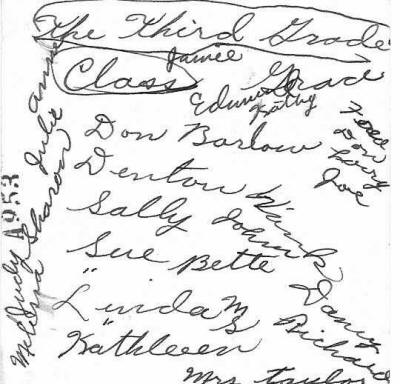 The Third Grade
Class
Jamie
Grace
Edmund
Kathy
Don Barlow
Denton
Sally
Sue Bette
"Linda M
"Kathleen S
Mrs. Taylor
Todd
Don
Larry
Joe
Wink
Johnny
Danny
Richard
Melva
Judy Sharon Julie Ann
1953